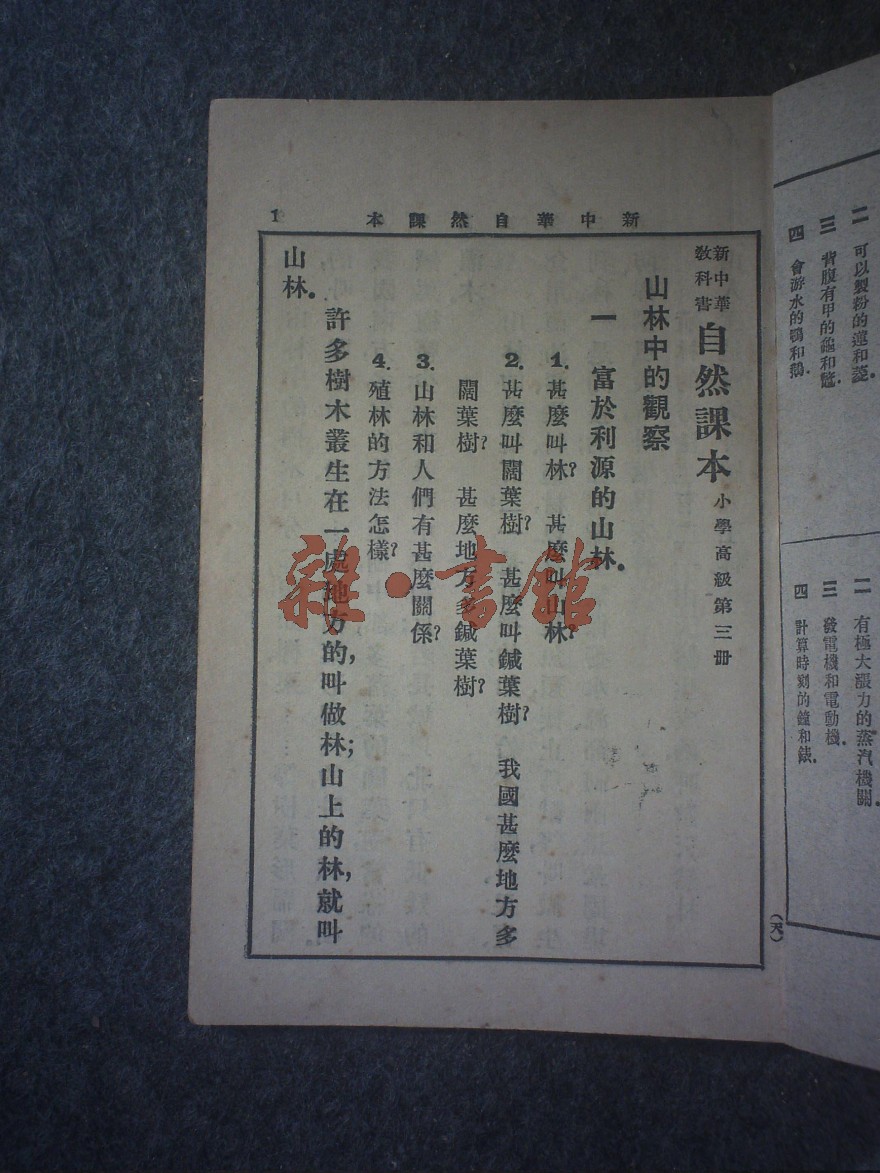 二 可以製粉的蓮和菱.
三 背腹有甲的龜和鼈.
四 會游水的鴨和鵝.
二 有極大漲力的蒸汽機關.
三 發電機和電動機.
四 計算時刻的鐘和錶.
(天)
新中華自然課本
1
新中華
教科書
自然課本 小學高級第三冊
山林中的觀察
一 富於利源的山林.
1. 甚麼叫林? 甚麼叫山林?
2. 甚麼叫闊葉樹? 甚麼叫鍼葉樹? 我國甚麼地方多
闊葉樹? 甚麼地方多鍼葉樹?
3. 山林和人們有甚麼關係?
4. 殖林的方法怎樣?
許多樹木叢生在一處地方的,叫做林;山上的林,就叫
山林.
雜·書館